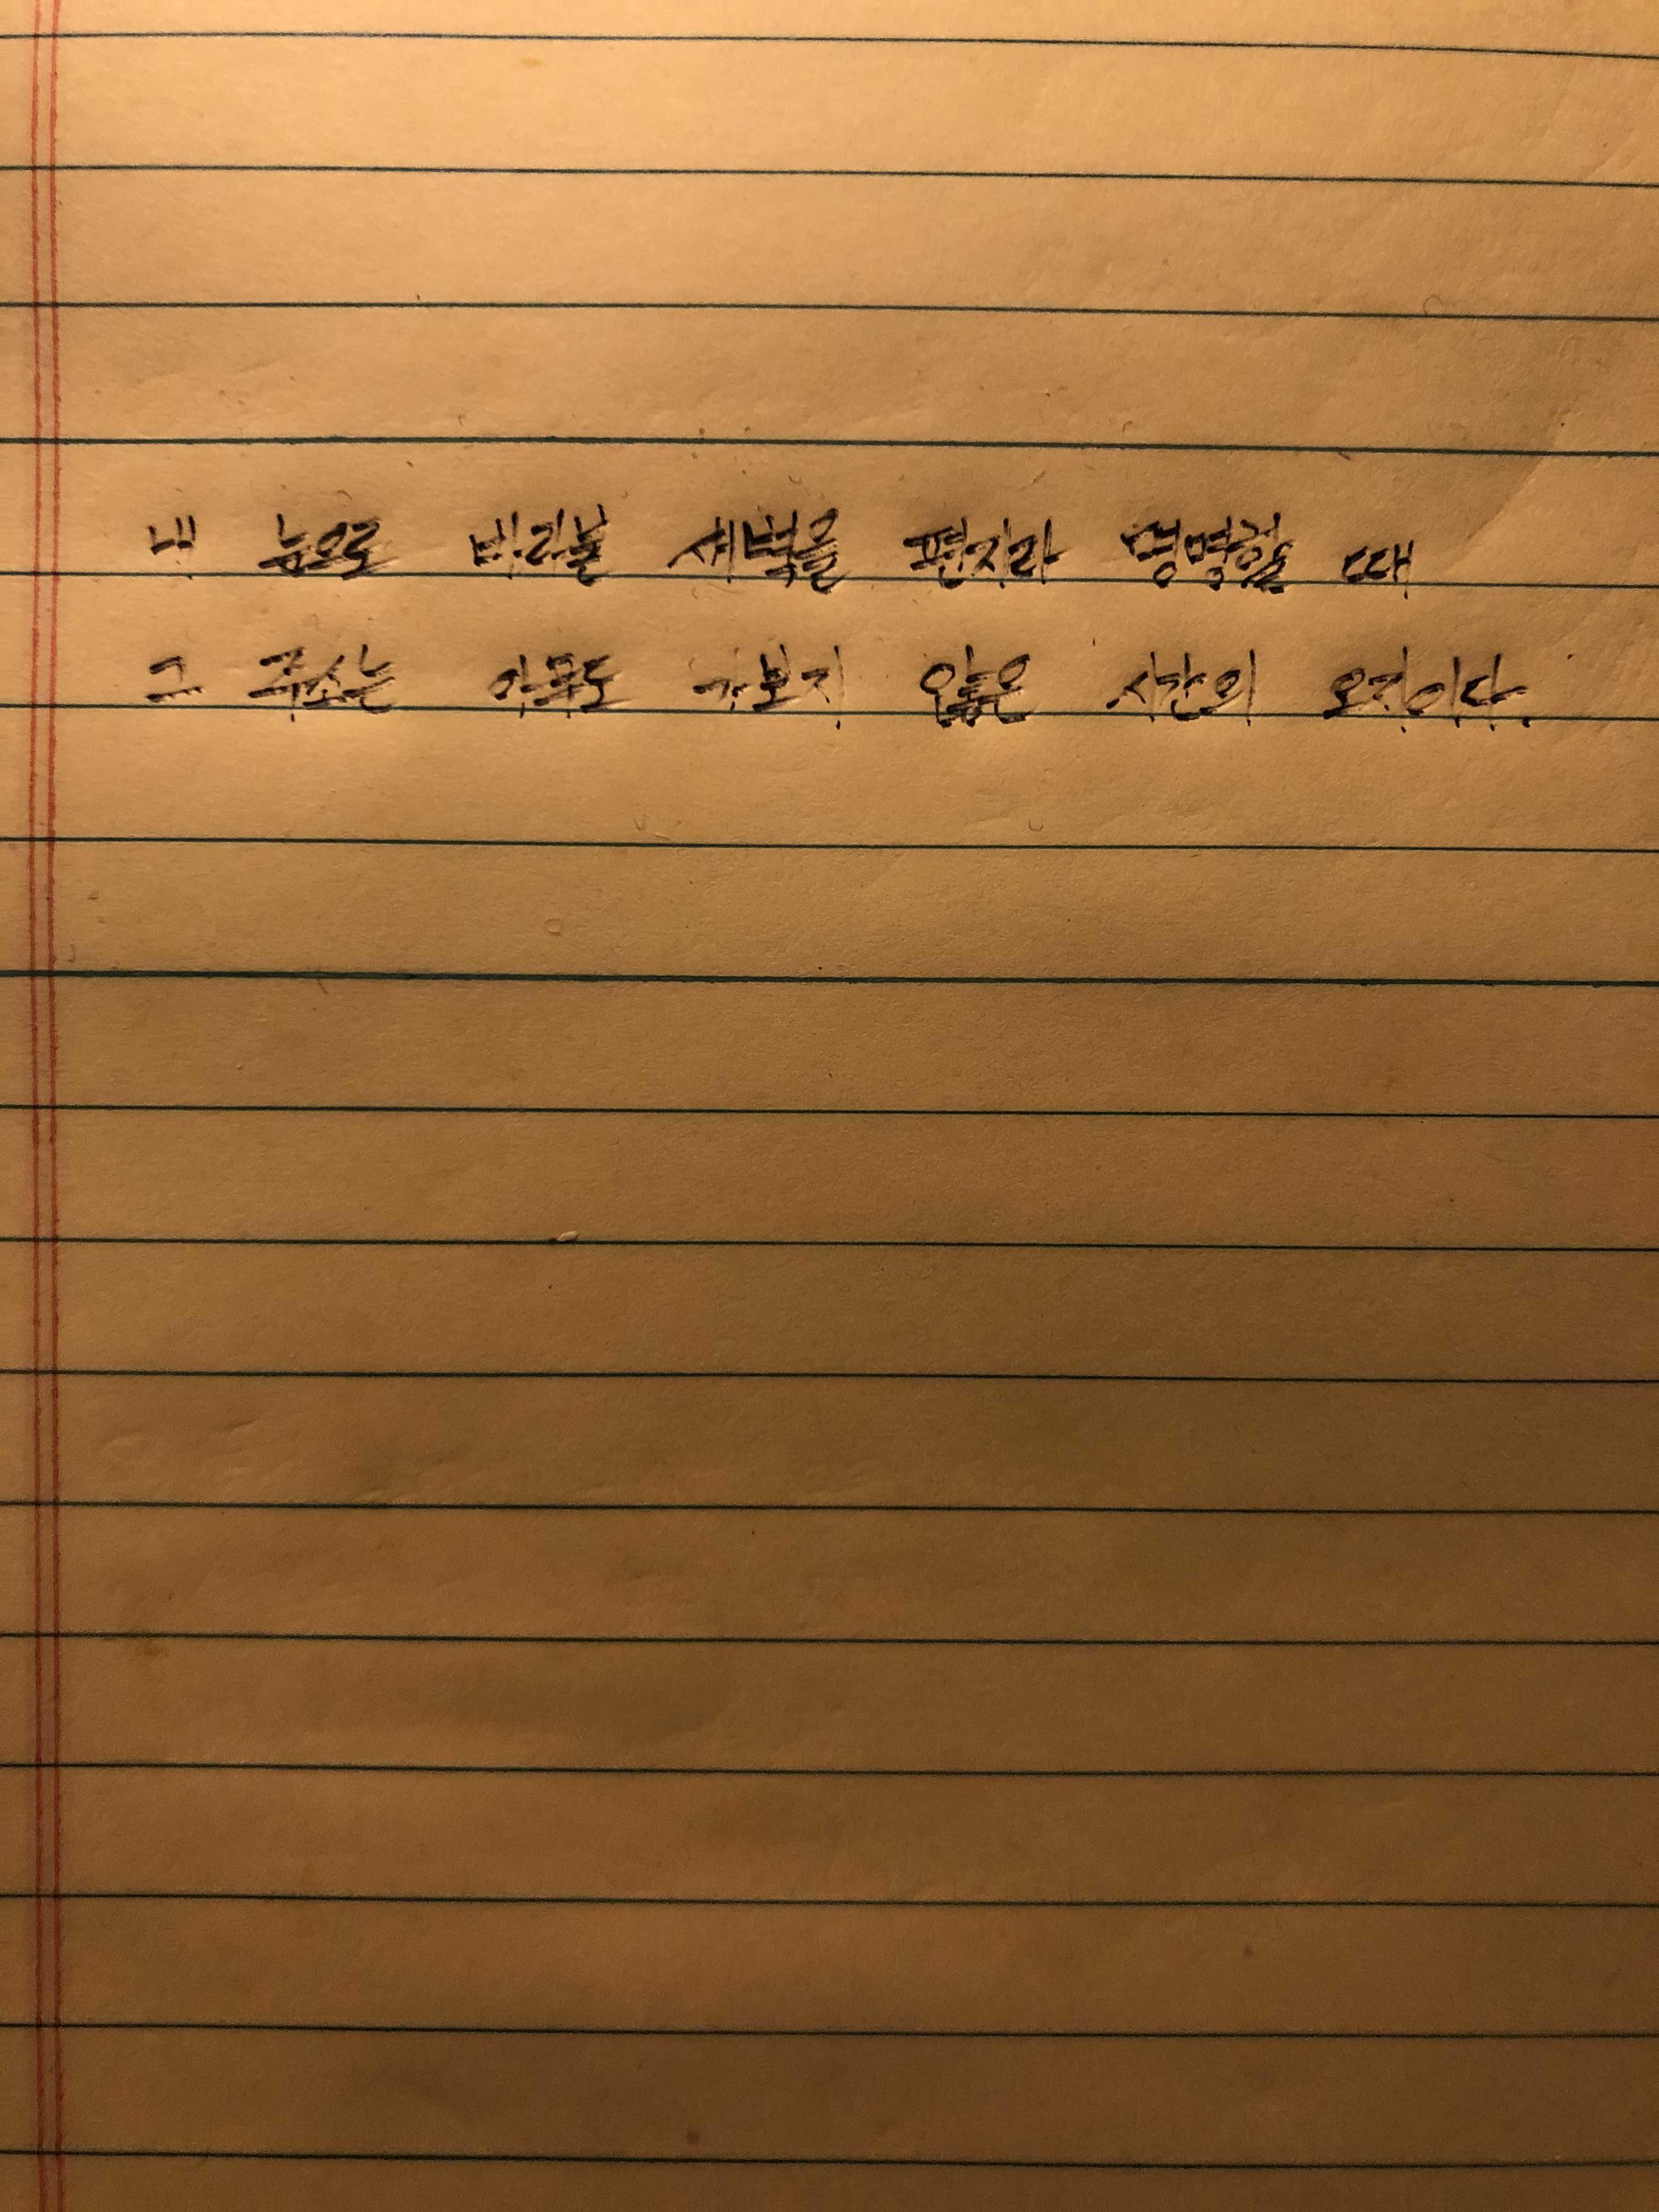 내 눈으로 바라볼 새벽을 편지라 명명할 때
그 주소는 아무도 가보지 않은 시간의 오지이다.